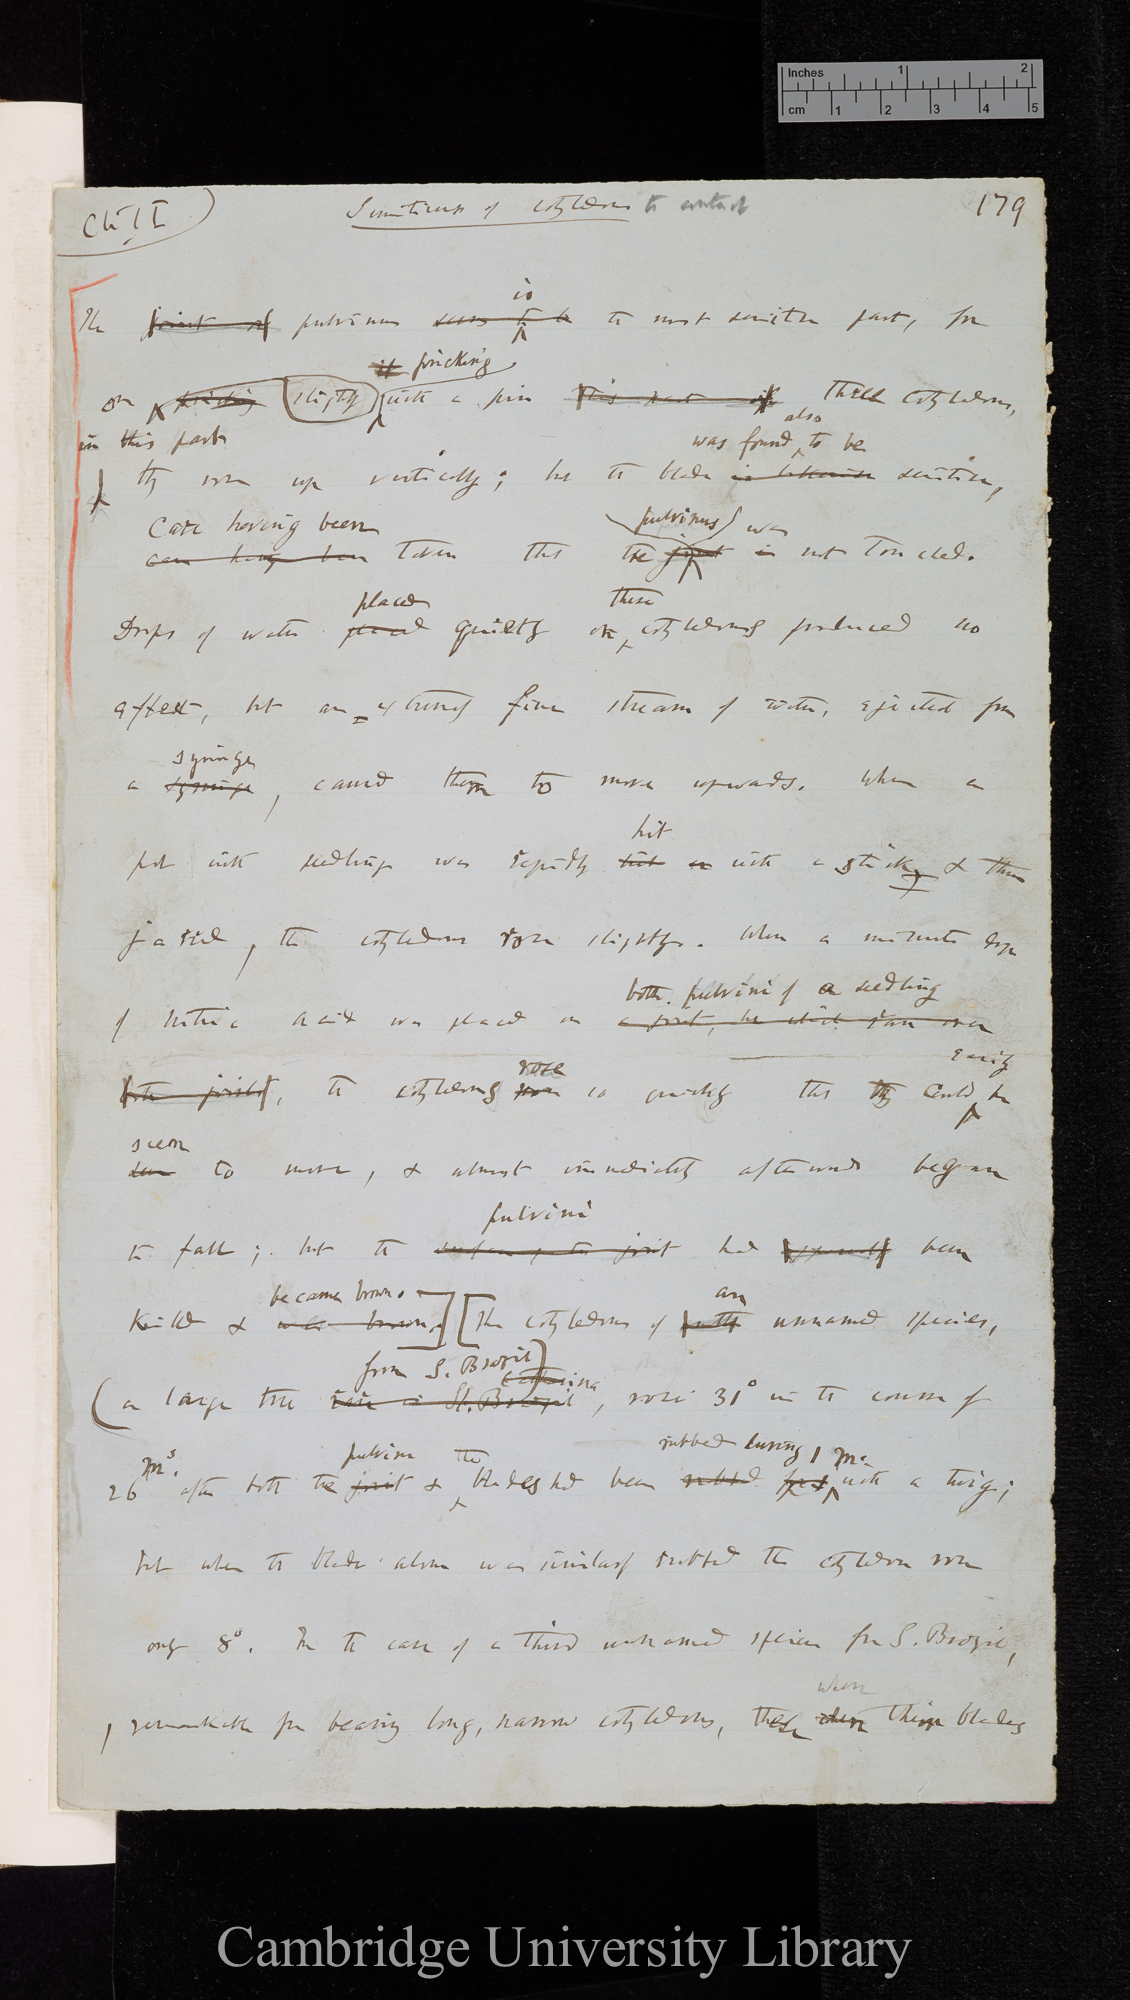 Inches 1 2
cm 1 2 3 4 5
Ch. II
Sensitiveness of cotyledons to contact
179
is
The joint of pulvinus seems to be the most sensitive part, for
it pricking
on pricking slightly with a pin this part of these cotyledons,
in this part
also
was found to be
they rose up vertically; but the blade is likewise sensitive,
Care having been pulvinus was
care having been taken that the joint is not touched.
placed these
Drops of water placed quietly on cotyledons produced no
effect, but an extremely fine stream of water, ejected from
syringe
a syringe, caused them to move upwards. When a
hit
pot with seedlings was rapidly hit with a stick & thus
jarred, the cotyledons rose slightly. When a minute drop
both pulvini of a seedling
of nitric acid was placed on a joint,
easily
rose
the joints, the cotyledons rose so quickly that they could be
seen
seen to move, & almost immediately afterwards began
pulvini
to fall; but the joint had been
became brown. an
killed & was brown. [The cotyledons of unnamed species,
from S. Brazil)
(a large tree S. Brazil, rose 31° in the course of
pulvini the rubbed during 1 m.
26 ms. after both the joint & blades had been rubbed for with a twig;
but when the blade alone was similarly rubbed the cotyledon rose
only 8°. In the case of a third unnamed species from S. Brazil,
when
remarkable for bearing long, narrow cotyledons, these when their blades
Cambridge University Library